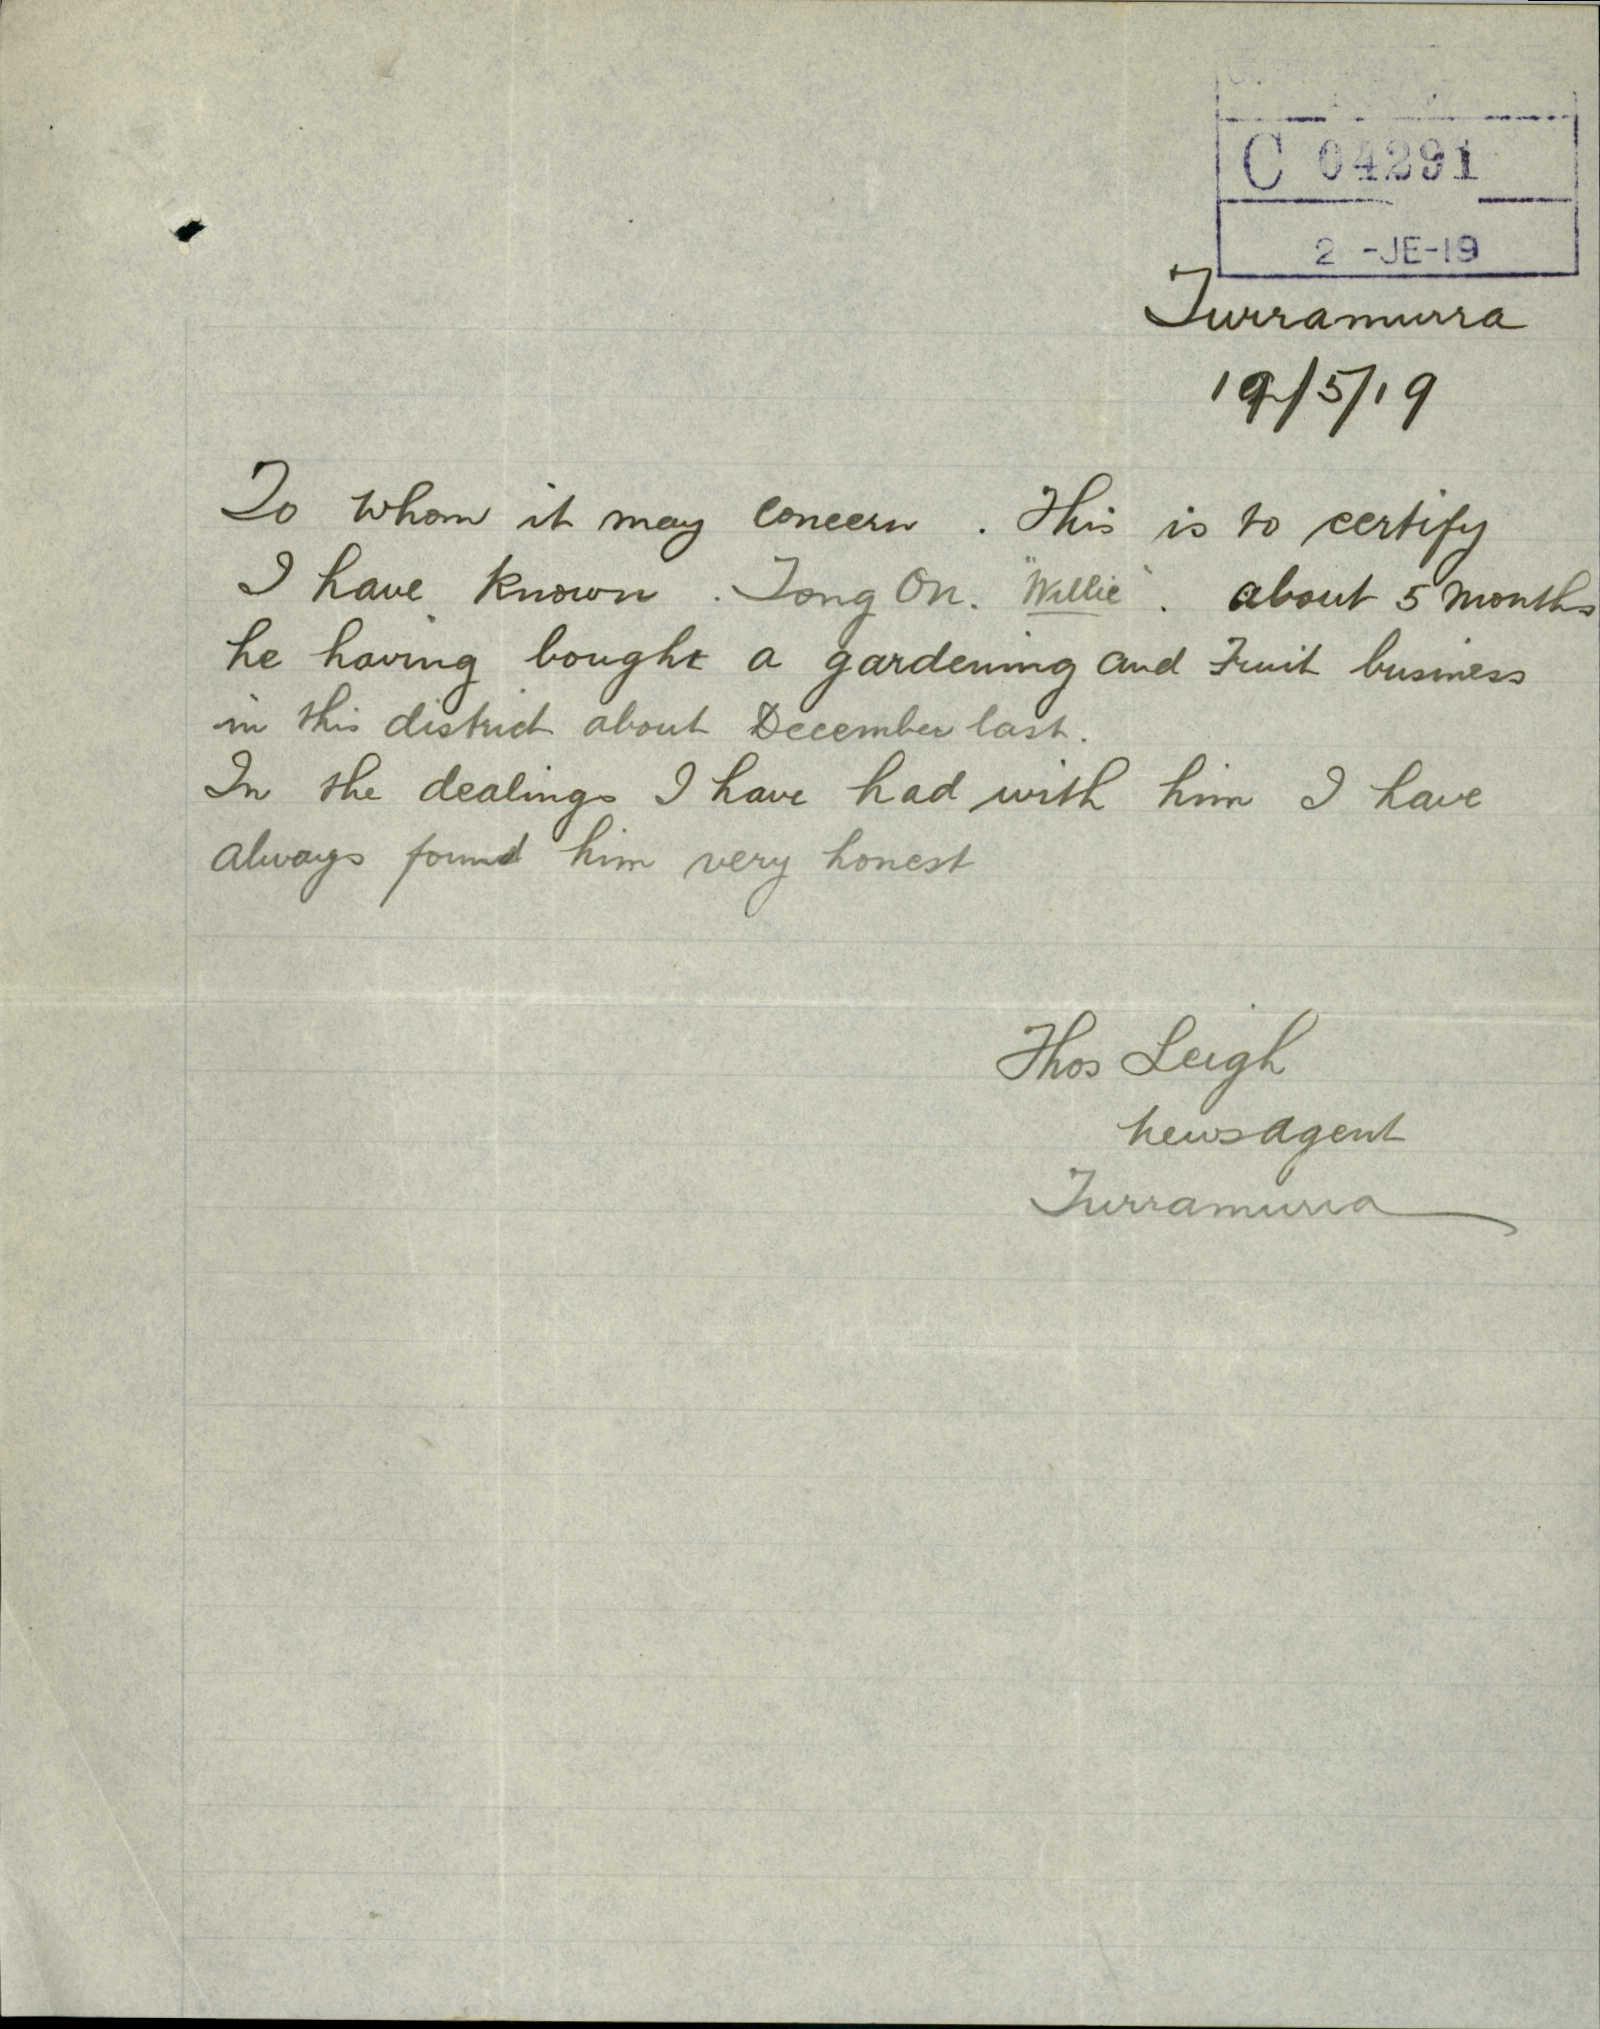 C 04291
2 -JE-19
Turramurra
19/5/19
To whom it may concern. This is to certify
I have known. Tong On. "Willie". about 5 months
he having bought a gardening and Fruit business
in this district about December last.
In the dealings I have had with him I have
always found him very honest
Thos Leigh
newsagent
Turramurra